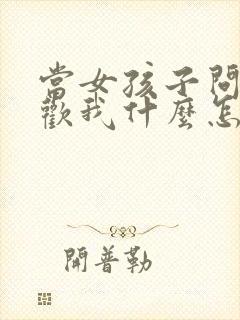 當女孩子問
歡我什麼怎
開普勒